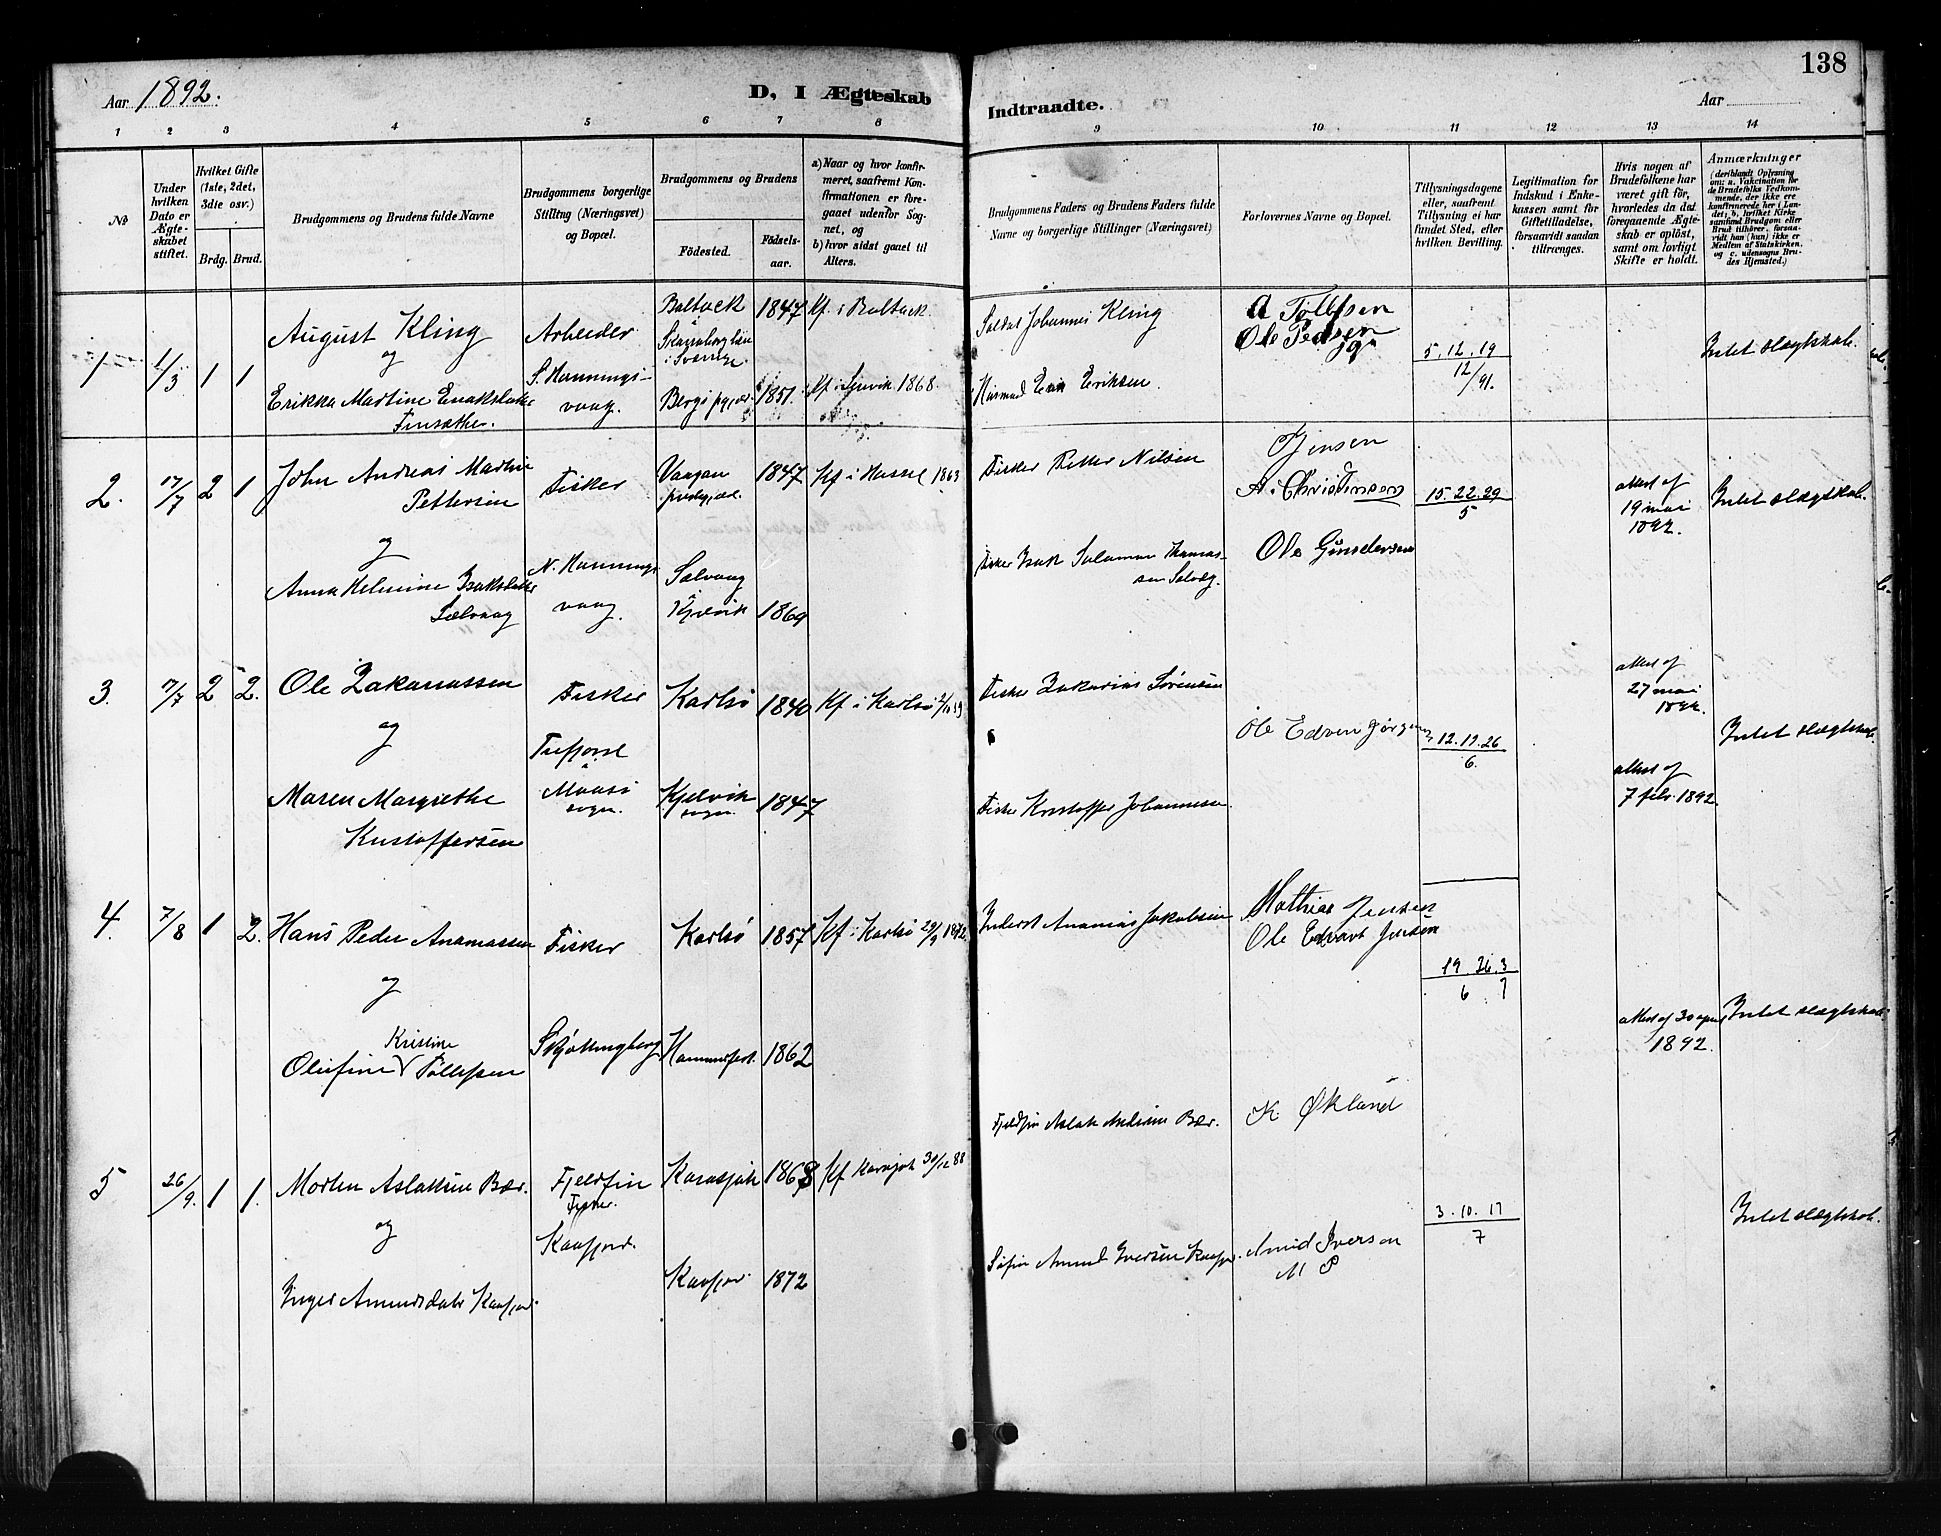 Aar 1892.
D, I Ægteskab
Indtraadte.
Aar
138
1 2 3 4 5 6 7 8 9 10 11 12 13 14
No
Under hvilken Dato er Ægteskabet stiftet.
Hvilket Gifte (1ste, 2det, 3die osv.)
Brdg. Brud.
Brudgommens og Brudens fulde Navne
Brudgommens borgerlige Stilling (Næringsvei) og Bopæl.
Brudgommens og Brudens
Födested.
Födselsaar.
a) Naar og hvor konfirmeret, saafremt Konfirmationen er foregaaet udenfor Sognet, og
b) hvor sidst gaaet til Alters.
Brudgommens Faders og Brudens Faders fulde Navne og borgerlige Stillinger (Næringsvei)
Forlovernes Navne og Bopæl.
Tillysningsdagene eller, saafremt Tillysning ei har fundet Sted, efter hvilken Bevilling.
Legitimation for Indskud i Enkekassen samt for Giftetilladelse, forsaavidt saadan tiltrænges.
Hvis nogen af Brudefolkene har været gift för, hvorledes da det foregaaende Ægteskab er oplöst, samt om lovligt Skifte er holdt.
Anmærkninger
(deriblandt Oplysning om: a. Vakcination for de Brudefolks Vedkommende, der ikke ere konfirmerede her i Landet; b. hvilket Kirkesamfund Brudgom eller Brud tilhörer, forsaavidt han (hun) ikke er Medlem af Statskirken, og c. udensogns Brudes Hjemsted.)
1 1/3 1 1
August Kling
og
Erikka Martine
Arbeider
S. Honningsvaag.
1847
1851.
Kf. i
Kf i 1868.
Soldat Johannes Kling
Eriksen.
A Tollefsen
Ole Pedersen
5.12.19
12/91.
Intet slægtskab.
2. 17/7 2 1
John Andreas Martin
Pettersen
og
Anna Helmine Isaksdatter
Sælvaag
Fisker
N. Honningsvaag.
Vaagan
præstegjæld.
Sælvaag
Kjelvik
1847
1869
Kf i Hassel 1863
Fisker Petter Nilsen
Fisker Isak Salamon Thomassen
Jensen
A. Christensen
Ole Gundersen
15.22.29
5
attest af
19 mai
1892.
Intet slægtskab.
3. 17/7 2 2.
Ole Zakariassen
og
Maren Margrethe
Kristoffersen
Fisker
Tufjord
Maasö
sogn.
Karlsö
Kjelvik
sogn.
1840
1847
Kf i Karlsö
Fisker Zakarias Sörensen
Fisker Kristoffer Johannesen
Ole Edven Jörgensen
12.19.26
6.
attest af
27 mai
1892.
attest af
7 febr. 1892.
Intet slægtskab.
4. 7/8 1 2.
Hans Peder Ananiassen
og
Kristine
Olufine V Tollefsen
Fisker
Skjøttingberg
Karlsö
Hammerfest.
1857
1862
Kf i Karlsö
Inderst Ananias Jakobsen
Mathias Jensen
Ole Edvart Jensen
19.26.3
6.7
attest af 30 april
1892.
Intet slægtskab.
5 26/9. 1 1.
Morten Aslaksen Bær.
og
Inger Amundsdatr Kaafjord.
Fjeldfin
Fisker.
Kaafjord.
Karasjok
Kaafjord.
1868
1872
Kf Karasjok 30/12 88
Fjeldfin Aslak Andersen Bær.
Söfin Amund Iversen Kaafjord.
K Økland
Amund Iversen
M P
3.10.17
7
Intet slægtskab.